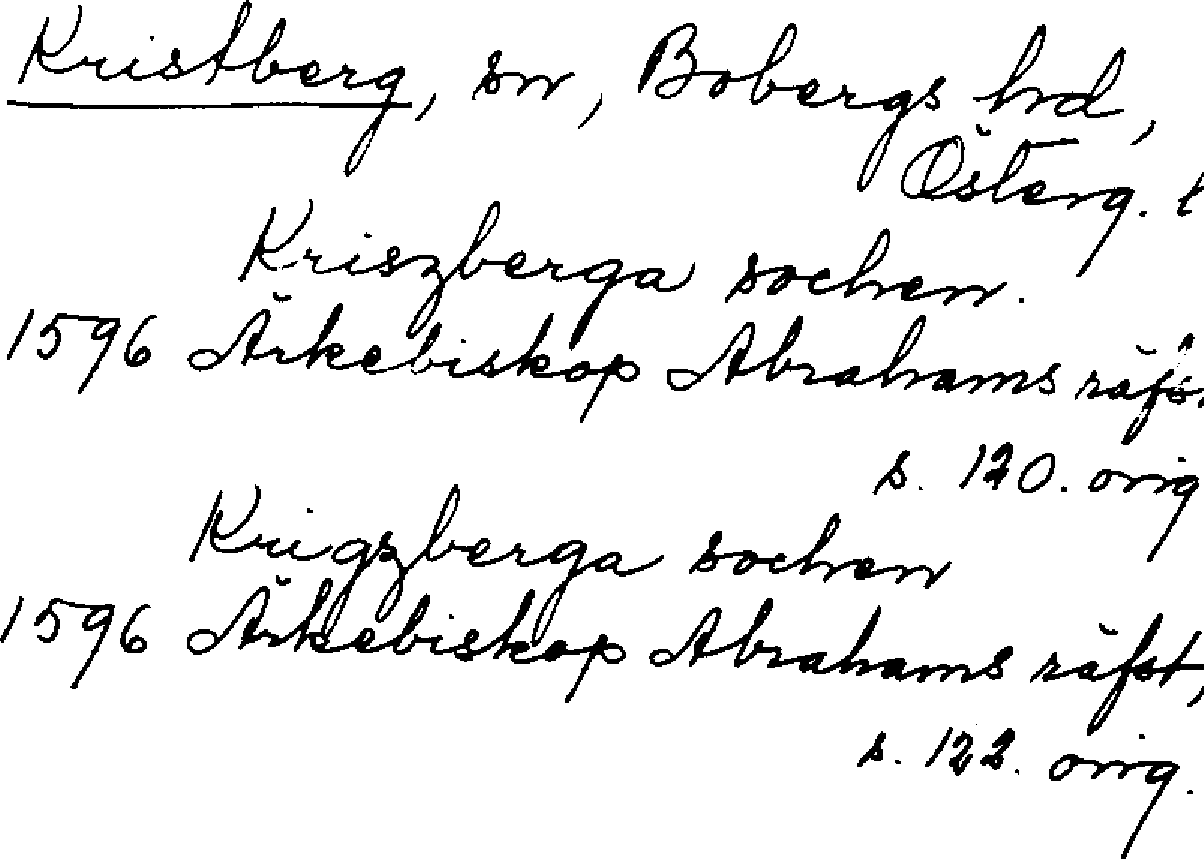 Kristberg, sn, Bobergs hd,
Österg. l
Kriszberga sochen.
1596 Ärkebiskop Abrahams räfs
s. 120. orig
Krigzberga sochen
1596 Ärkebiskop Abrahams räfst,
s. 122. orig.